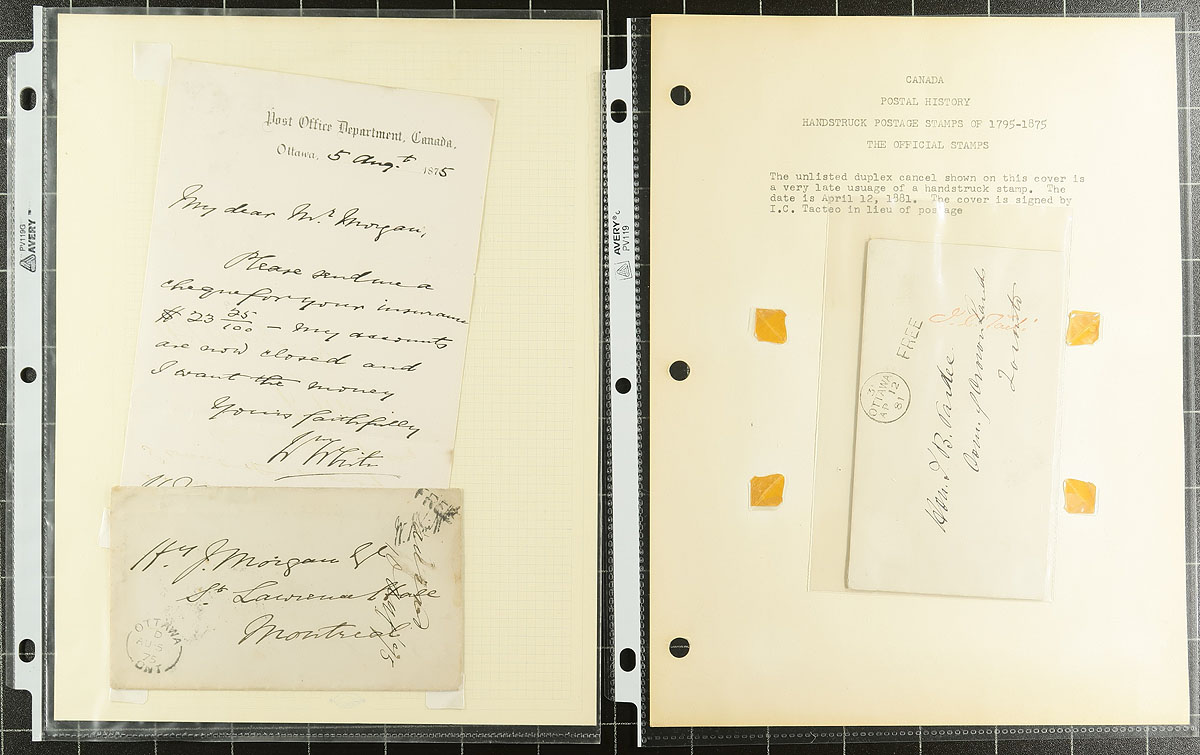 Post Office Department, Canada,
Ottawa, 5 Augt 1875
My dear Mr Morgan,
Please send me a
cheque for your insurance
$23 25/100 — my accounts
are now closed and
I want the money
Yours faithfully
Wm White
FREE
Hy J. Morgan
St Lawrence Hall
Montreal
OTTAWA
D
AU 5
75
ONT
PV119G
AVERY™
AVERY
PV119
CANADA
POSTAL HISTORY
HANDSTRUCK POSTAGE STAMPS OF 1795-1875
THE OFFICIAL STAMPS
The unlisted duplex cancel shown on this cover is
a very late usuage of a handstruck stamp. The
date is April 12, 1881. The cover is signed by
I.C. Tacteo in lieu of postage
FREE
OTTAWA
AP 12
81
Hon. T. B. Pardee
Com. of Crown Lands
Toronto